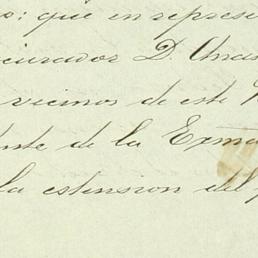 o: que en represe
ocurador D. Anas
vecinos de este
nte de la Erm
la estension del p